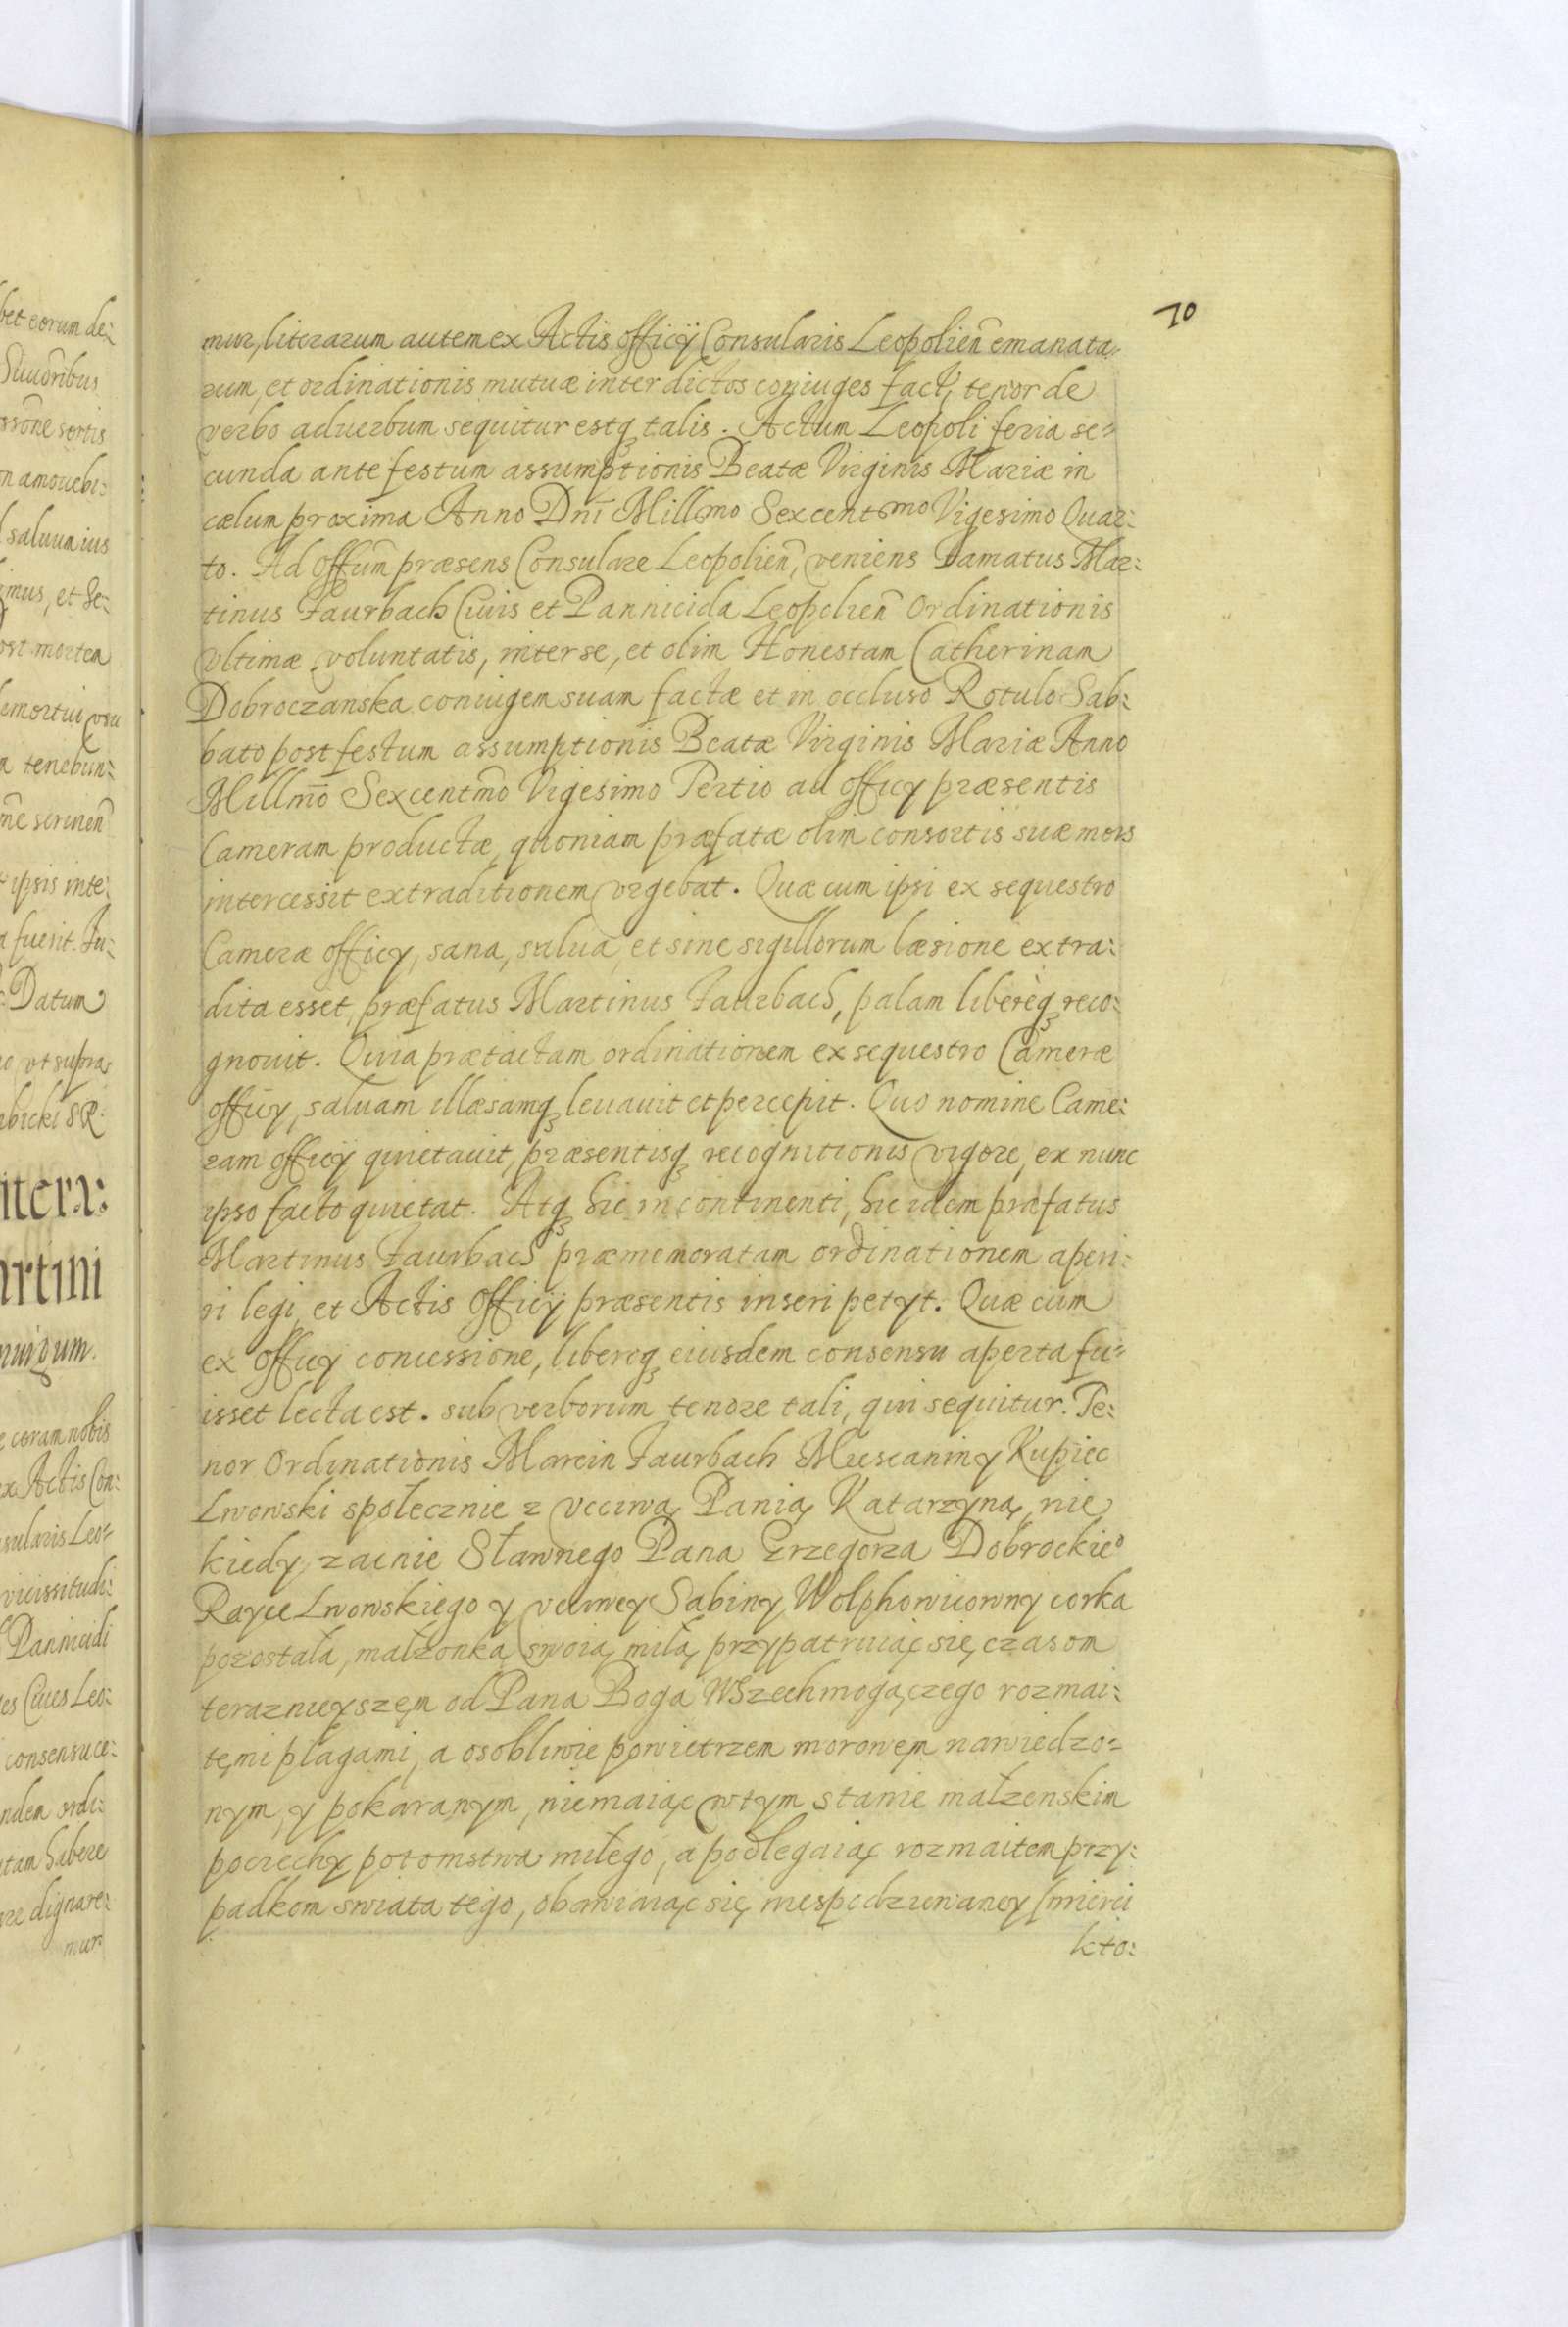 70
mur, literarum autem ex Actis officÿ Consularis Leopolien̄ emanata=
rum, et ordinationis mutuæ inter dictos coniuges fact, tenor de
verbo aduerbum sequitur estq talis. Actum Leopoli feria se=
cunda ante festum assumptionis Beatæ Virginis Mariæ in
cælum proxima Anno Dnī Millmo Sexcentmo Vigesimo Quar:
to. Ad Offum̄ præsens Consulare Leopolien̄, veniens Famatus Mar:
tinus Faurbach Ciuis et Pannicida Leopolien̄ Ordinationis
vltimæ voluntatis, inter se, et olim Honestam Catherinam
Dobroczanska coniugem suam factæ et in occluso Rotulo Sab:
bato post festum assumptionis Beatæ Virginis Mariæ Anno
Millmō Sexcentmō Vigesimo Tertio ad officÿ præsentis
Cameram productæ, quoniam præfatæ olim consortis suæ mors
intercessit extraditionem vrgebat. Quæ cum ipsi ex sequestro
Cameræ officÿ, sana, salua, et sine sigillorum læsione extra:
dita esset, præfatus Martinus Faurbach, palam liberèq reco:
gnouit. Quia prætactam ordinationem ex sequestro Cameræ
officÿ, saluam illæsamq leuauit et percepit. Quo nomine Came:
ram officÿ quietauit, præsentisq recognitionis vigore, ex nunc
ipso facto quietat. Atq hic in continenti, hic idem præfatus
Martinus Faurbach præmemoratam ordinationem aperi:
ri legi, et Actis Officÿ præsentis inseri petÿt. Quæ cum
ex officÿ concessione, libereq eiusdem consensu aperta fu=
isset lecta est. sub verborum tenore tali, qui sequitur. Te:
nor Ordinationis Marcin Faurbach Miescanin y Kupiec
Lwowski społecznie z vcciwą Panią Katarzyną, nie
kiedy, zacnie Sławnego Pana Grzegorza Dobrockieo
Rayce Lwowskiego y vcciwey Sabiny Wolphowicowny corka
pozostała, małzonką swoią miłą przypatruiąc się czasom
teraznieyszem od Pana Boga Wszechmogączego rozmai:
tęmi plagami, a osobliwie powietrzem morowem nawiedzo=
nym, y pokaranym, niemaiąc wtym stanie małzenskim
pociechy potomstwa miłego, a podlegaiąc rozmaitem przy:
padkom swiata tego, obawiaiąc się niespodziewaney smierci
kto: